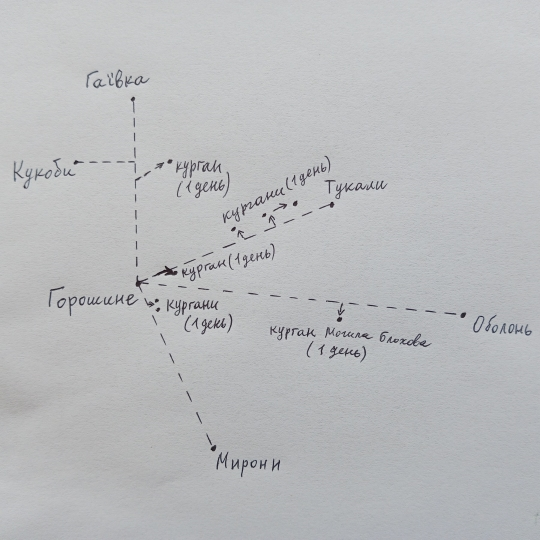 Гаївка
Кукоби
курган
(1 день)
кургани (1 день)
Тукали
курган (1 день)
Горошине
кургани
(1 день)
Оболонь
курган Могила Блохова
(1 день)
Мирони